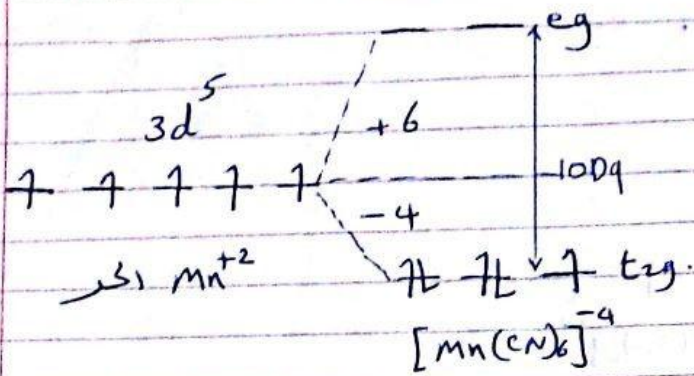 eg
3d⁵
+6
10Dq
-4
الحر Mn⁺²
t₂g.
[Mn(CN)₆]⁻⁴